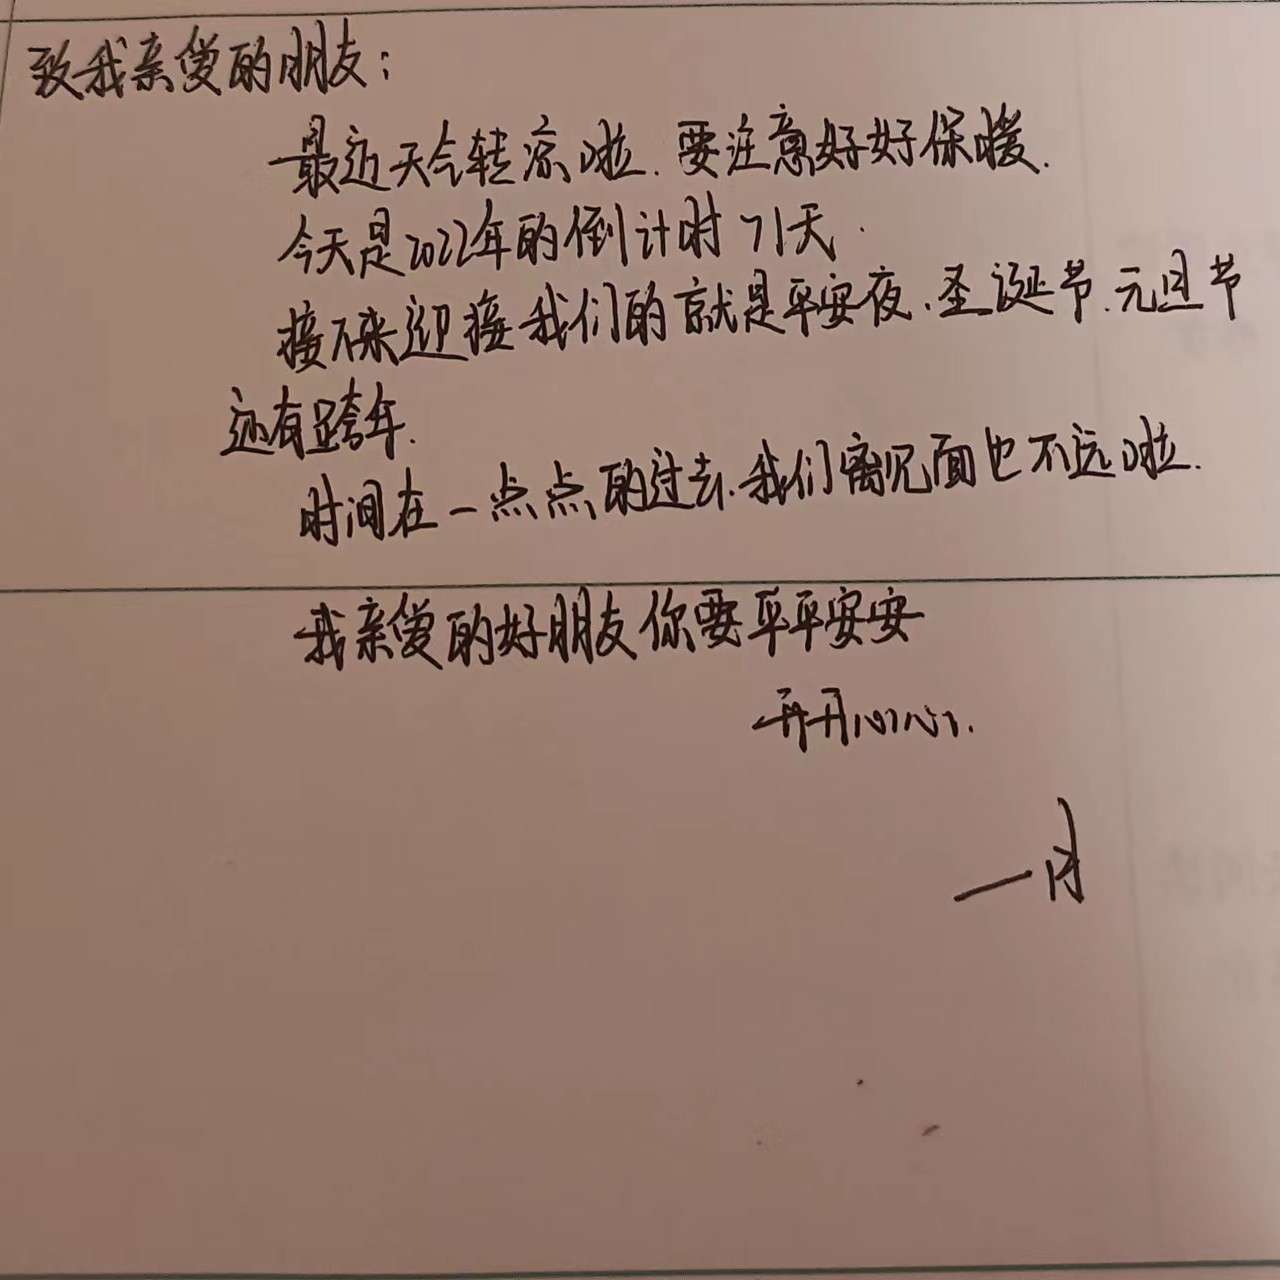 致我亲爱的朋友:
最近天气转凉啦.要注意好好保暖.
今天是2022年的倒计时71天.
接下来迎接我们的就是平安夜.圣诞节.元旦节
还有跨年.
时间在一点点的过去.我们离见面也不远啦.
我亲爱的好朋友你要平平安安
开开心心.
一月